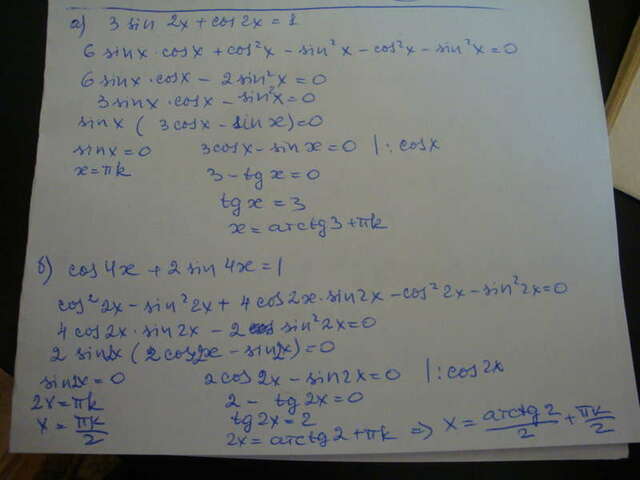 а) 3 sin 2x + cos 2x = 1
6 sin x · cos x + cos²x − sin²x − cos²x − sin²x = 0
6 sin x · cos x − 2 sin²x = 0
3 sin x · cos x − sin²x = 0
sin x ( 3 cos x − sin x) = 0
sin x = 0 3 cos x − sin x = 0 | : cos x
x = πk 3 − tg x = 0
tg x = 3
x = arctg 3 + πk
б) cos 4x + 2 sin 4x = 1
cos² 2x − sin² 2x + 4 cos 2x · sin 2x − cos² 2x − sin² 2x = 0
4 cos 2x · sin 2x − 2 sin² 2x = 0
2 sin 2x ( 2 cos 2x − sin 2x) = 0
sin 2x = 0 2 cos 2x − sin 2x = 0 | : cos 2x
2x = πk 2 − tg 2x = 0
x = πk/2 tg 2x = 2
2x = arctg 2 + πk ⇒ x = arctg 2/2 + πk/2